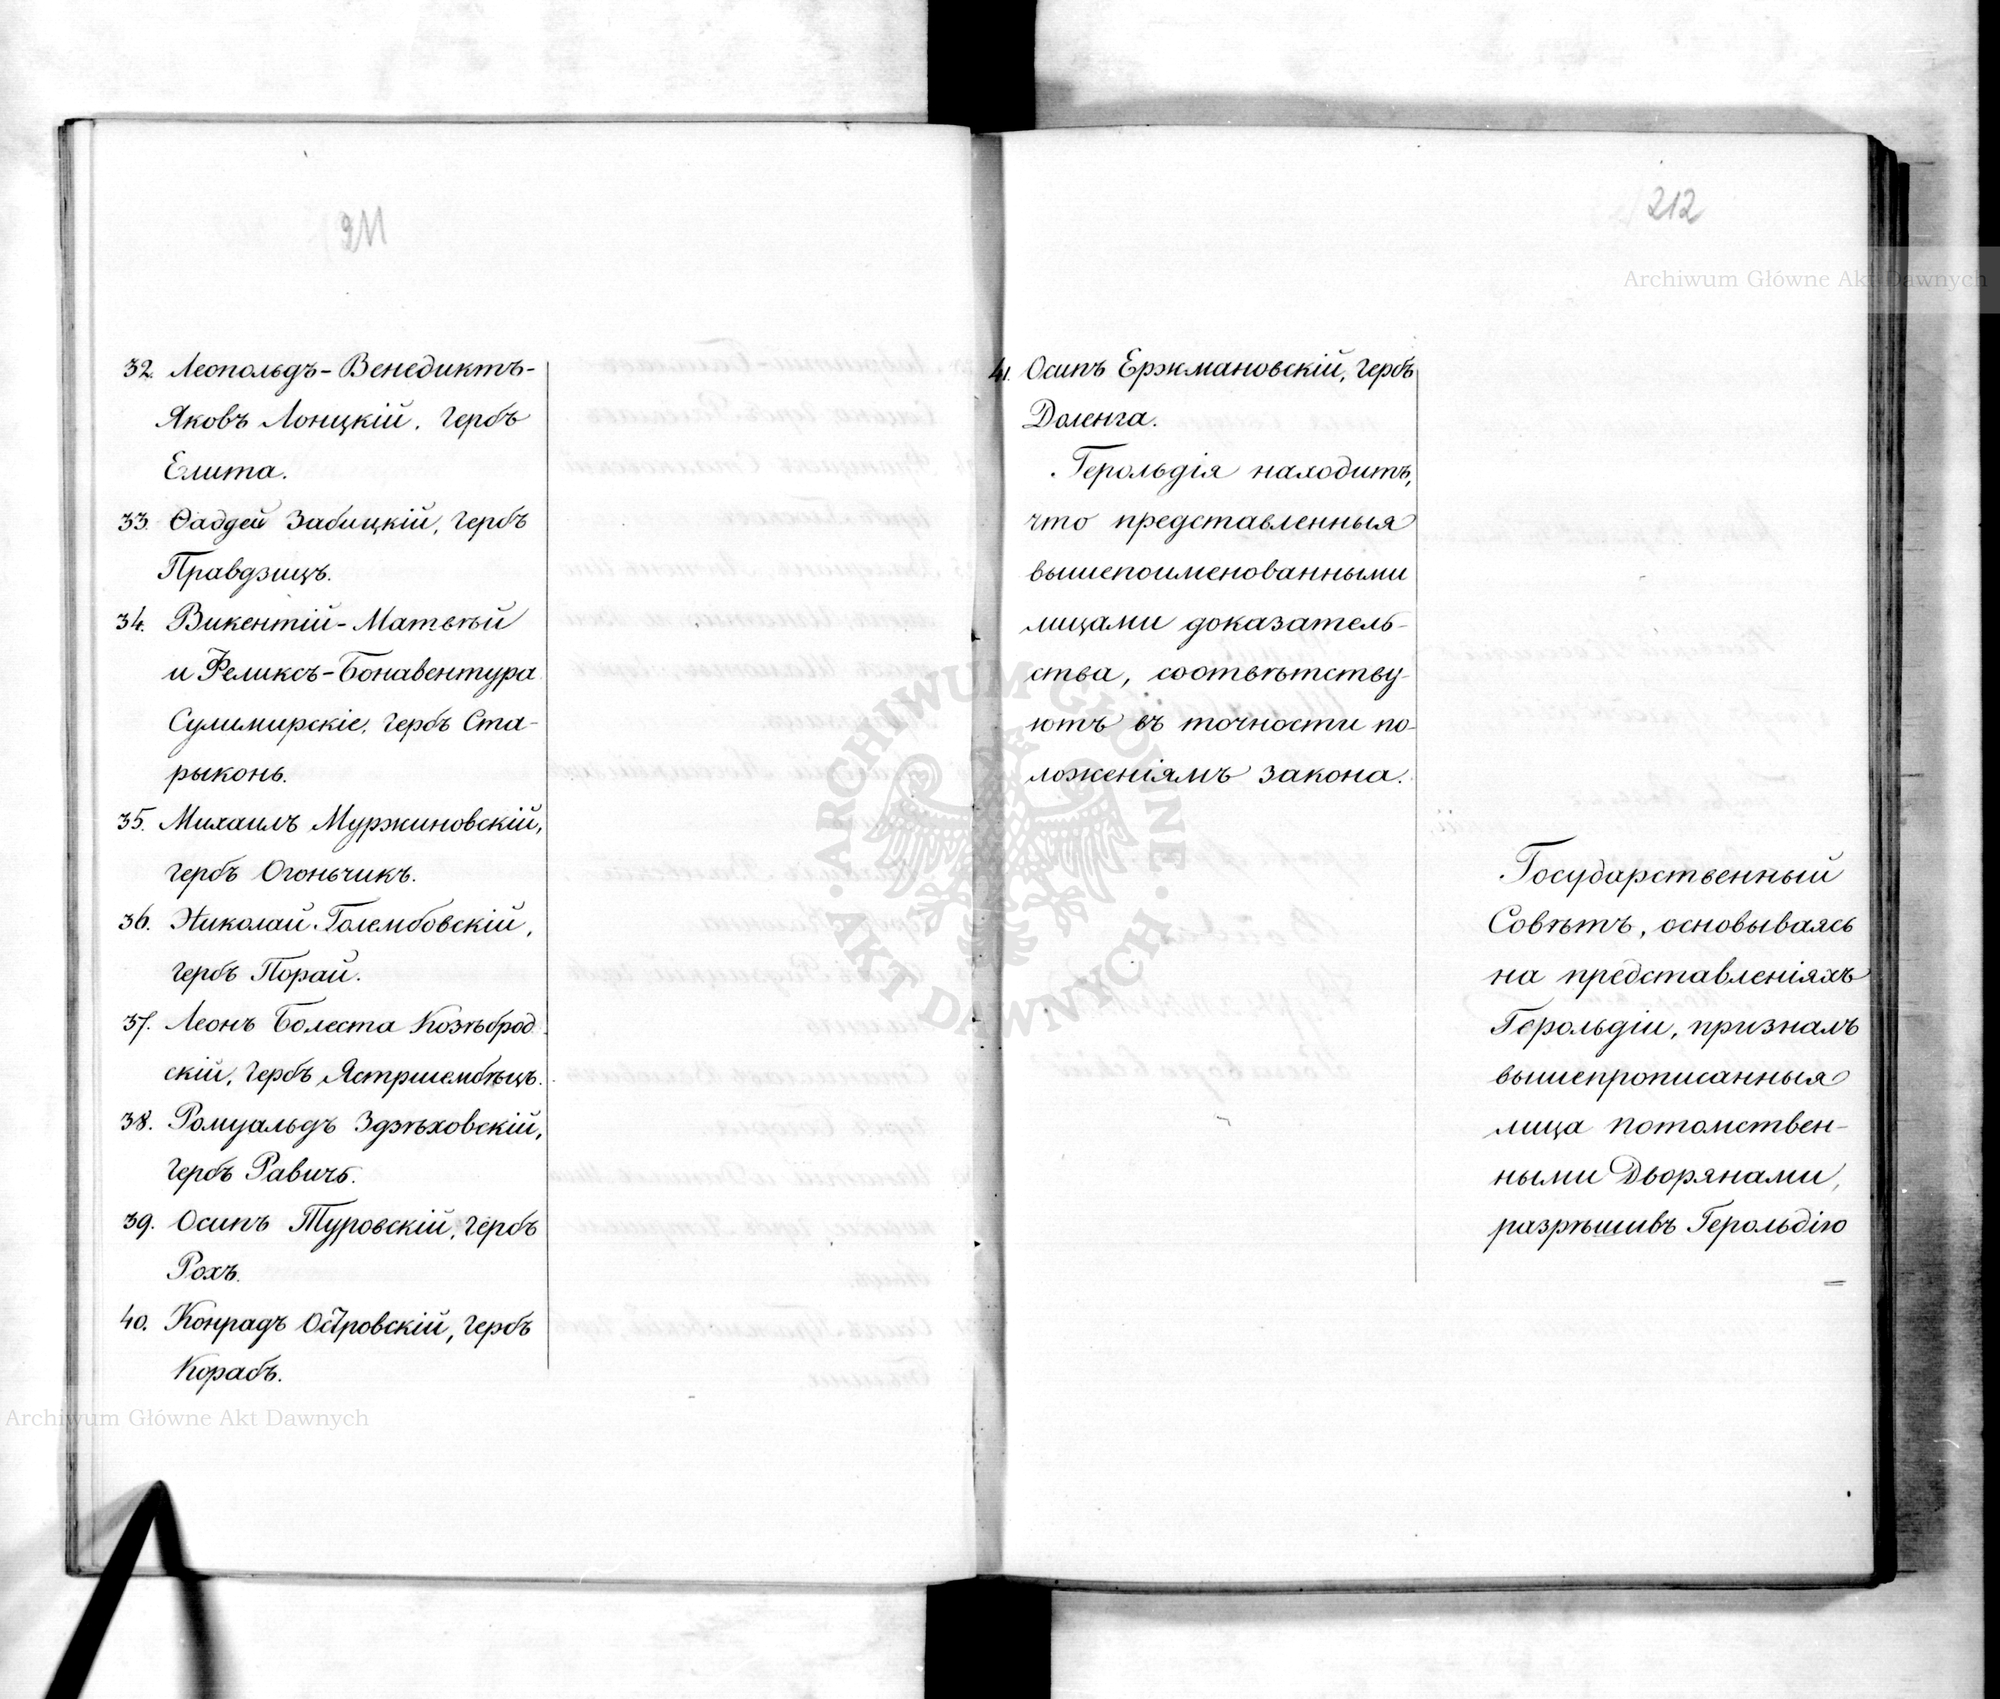 211
32. Леопольдъ-Венедиктъ-
Яковъ Лонцкій, гербъ
Елита.
33. Ѳаддей Забицкій, гербъ
Правдзицъ.
34. Викентій-Матвѣй
и Феликсъ-Бонавентура
Сулимирскіе, гербъ Ста-
рыконь.
35. Михаилъ Муржиновскій,
гербъ Огоньчикъ.
36. Николай Голембовскій,
гербъ Порай.
37. Леонъ Болеста Козѣброд-
скій, гербъ Ястршембѣцъ.
38. Ромуальдъ Здзѣховскій,
гербъ Равичъ.
39. Осипъ Туровскій, гербъ
Рохъ.
40. Конрадъ Островскій, гербъ
Корабъ.
212
41. Осипъ Ержмановскій, гербъ
Доленга.
Герольдія находитъ,
что представленныя
вышепоименованными
лицами доказатель-
ства, соотвѣтству-
ютъ въ точности по-
ложеніямъ закона.
Государственный
Совѣтъ, основываясь
на представленіяхъ
Герольдіи, призналъ
вышепрописанныя
лица потомствен-
ными Дворянами,
разрѣшивъ Герольдію
Archiwum Główne Akt Dawnych
Archiwum Główne Akt Dawnych
ARCHIWUM GŁÓWNE
AKT DAWNYCH